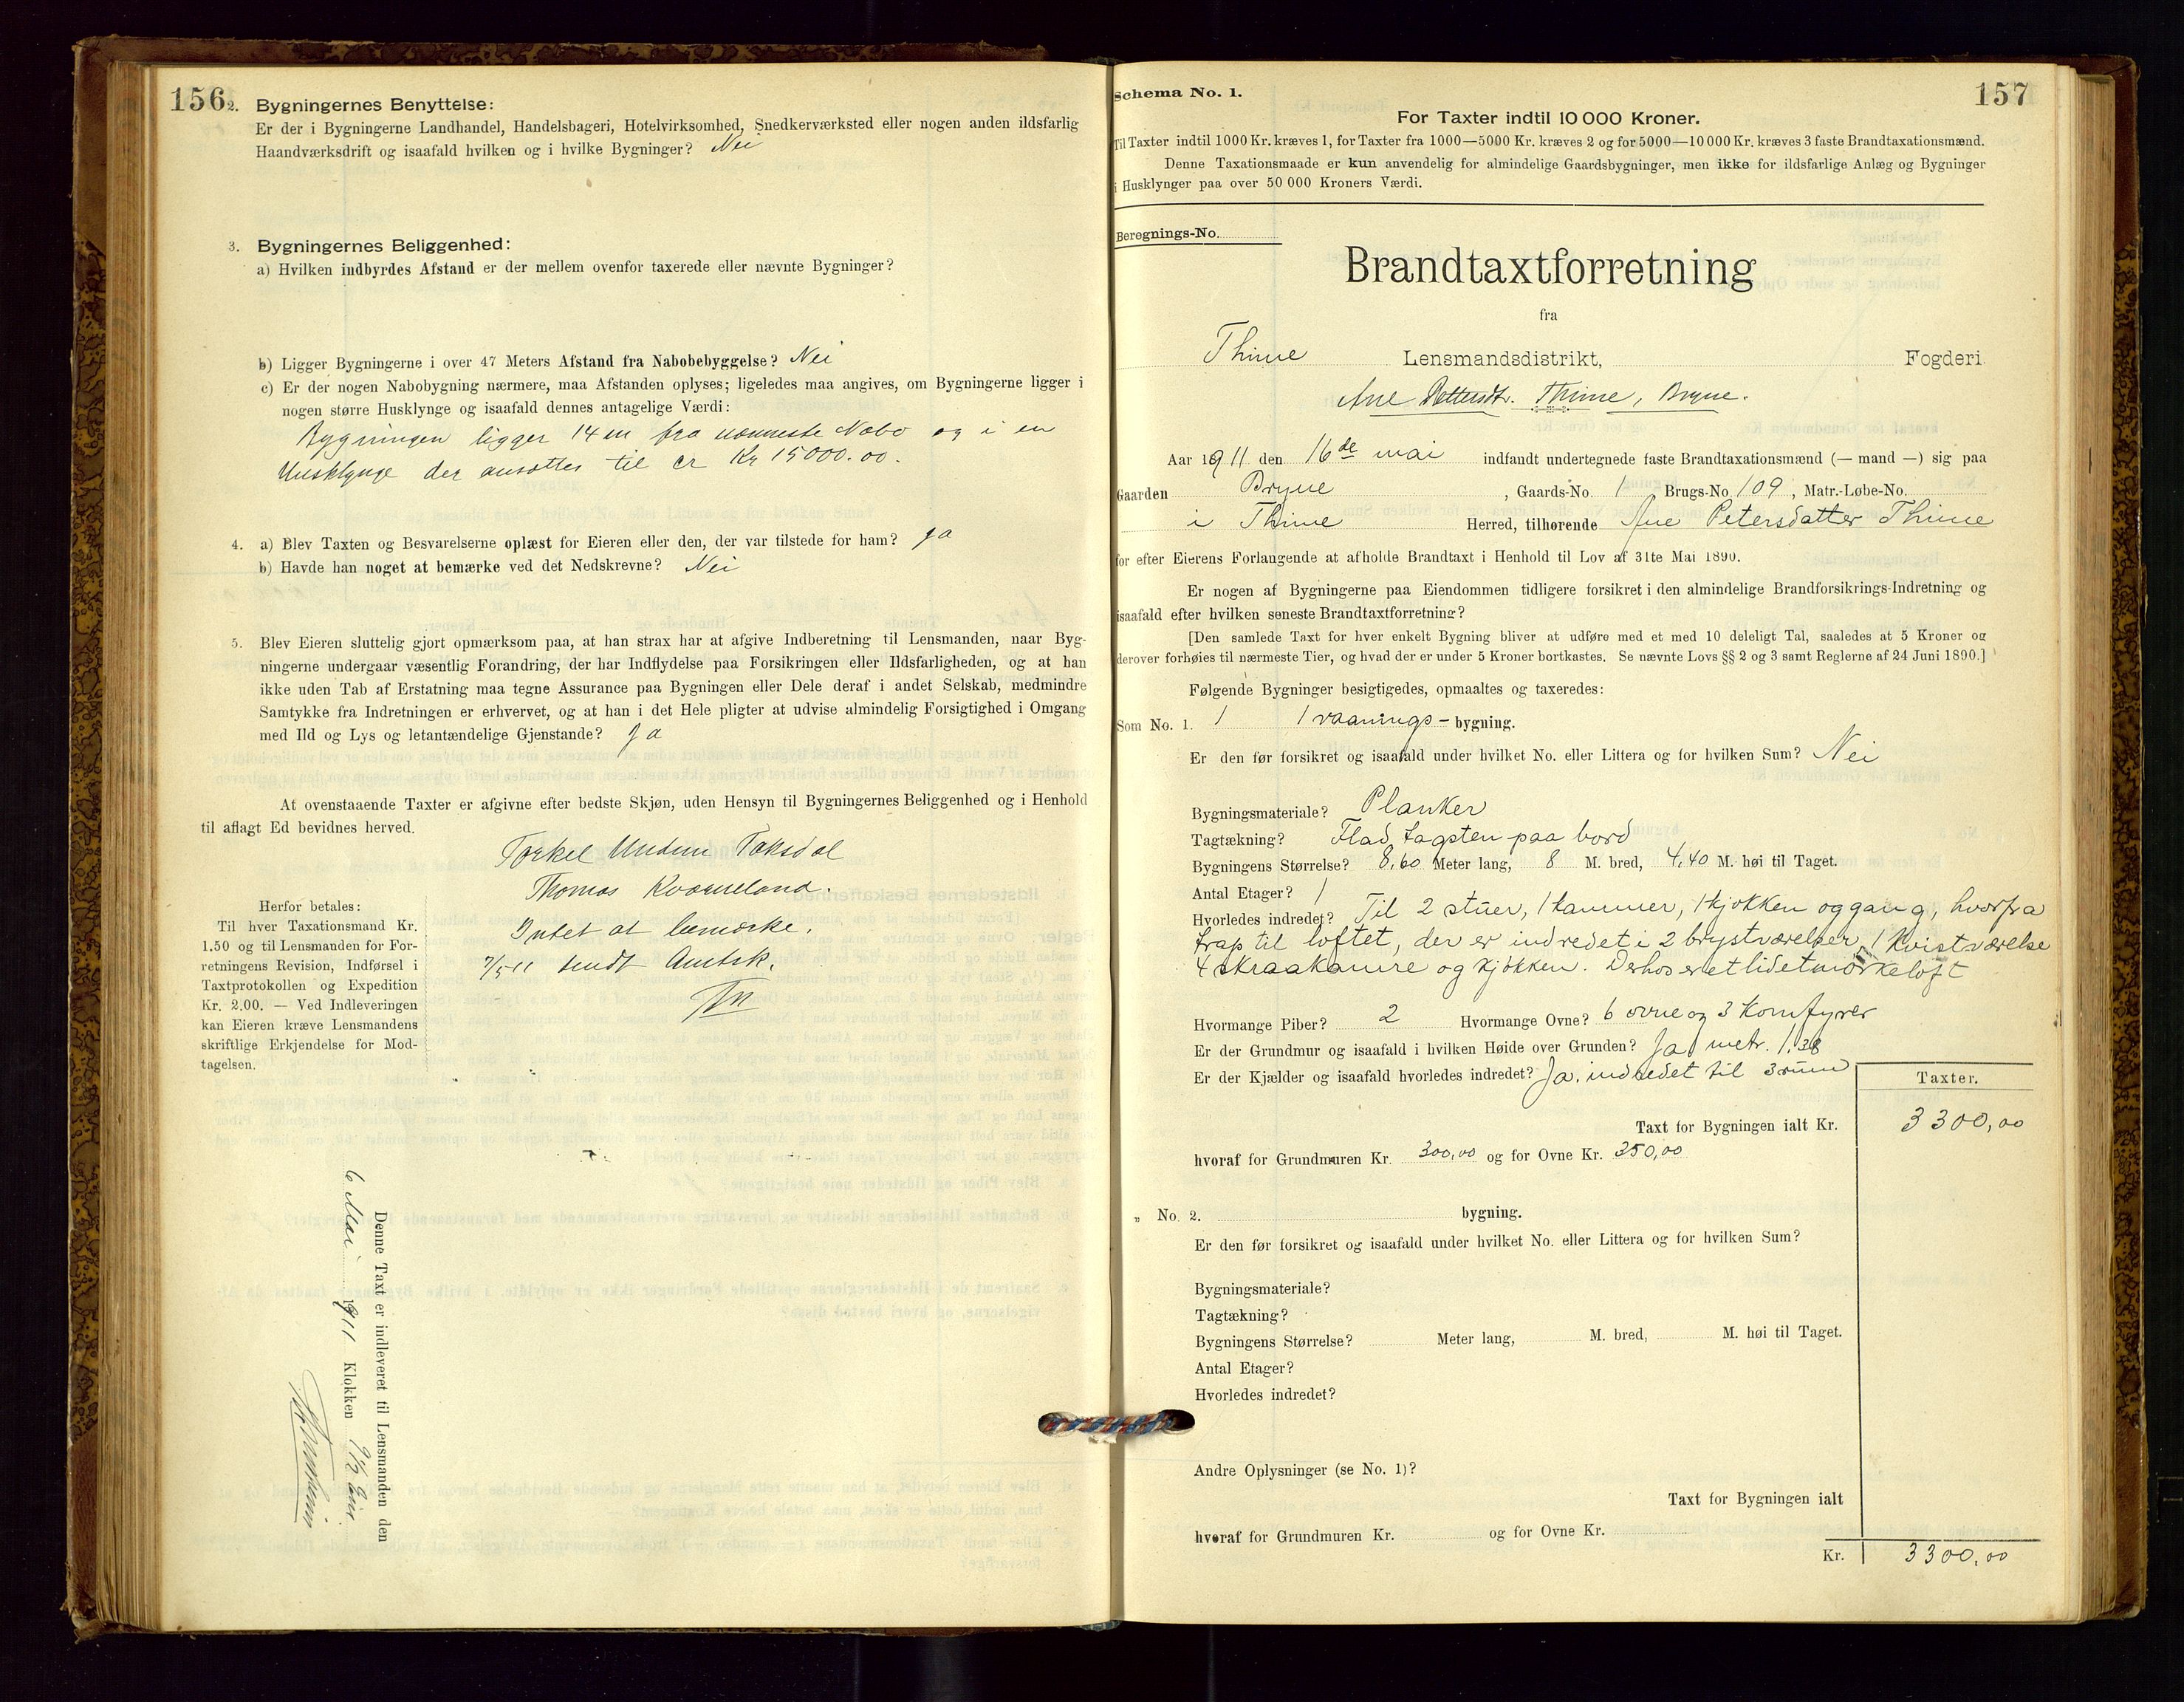 156
2. Bygningernes Benyttelse:
Er der i Bygningerne Landhandel, Handelsbageri, Hotelvirksomhed, Snedkerværksted eller nogen anden ildsfarlig
Haandværksdrift og isaafald hvilken og i hvilke Bygninger? Nei
3. Bygningernes Beliggenhed:
a) Hvilken indbyrdes Afstand er der mellem ovenfor taxerede eller nævnte Bygninger?
b) Ligger Bygningerne i over 47 Meters Afstand fra Nabobebyggelse? Nei
c) Er der nogen Nabobygning nærmere, maa Afstanden oplyses; ligeledes maa angives, om Bygningerne ligger i
nogen større Husklynge og isaafald dennes antagelige Værdi:
Bygningen ligger 14 m fra nærmeste Nabo og i en
Husklynge der ansættes til cr Kr 15000.00.
4. a) Blev Taxten og Besvarelserne oplæst for Eieren eller den, der var tilstede for ham? ja
b) Havde han noget at bemærke ved det Nedskrevne? Nei
5. Blev Eieren sluttelig gjort opmærksom paa, at han strax har at afgive Indberetning til Lensmanden, naar Byg-
ningerne undergaar væsentlig Forandring, der har Indflydelse paa Forsikringen eller Ildsfarligheden, og at han
ikke uden Tab af Erstatning maa tegne Assurance paa Bygningen eller Dele deraf i andet Selskab, medmindre
Samtykke fra Indretningen er erhvervet, og at han i det Hele pligter at udvise almindelig Forsigtighed i Omgang
med Ild og Lys og letantændelige Gjenstande? Ja
At ovenstaaende Taxter er afgivne efter bedste Skjøn, uden Hensyn til Bygningernes Beliggenhed og i Henhold
til aflagt Ed bevidnes herved.
Torkel Undem Taksdal
Thomas Kværneland.
Intet at bemærke.
7/5 11 sendt Amtsk.
Herfor betales:
Til hver Taxationsmand Kr.
1.50 og til Lensmanden for For-
retningens Revision, Indførsel i
Taxtprotokollen og Expedition
Kr. 2.00. — Ved Indleveringen
kan Eieren kræve Lensmandens
skriftlige Erkjendelse for Mod-
tagelsen.
Denne Taxt er indleveret til Lensmanden den
6 Mai 1911 Klokken 9½ Em
157
Schema No. 1.
For Taxter indtil 10 000 Kroner.
Til Taxter indtil 1000 Kr. kræves 1, for Taxter fra 1000—5000 Kr. kræves 2 og for 5000—10 000 Kr. kræves 3 faste Brandtaxationsmænd.
Denne Taxationsmaade er kun anvendelig for almindelige Gaardsbygninger, men ikke for ildsfarlige Anlæg og Bygninger
i Husklynger paa over 50 000 Kroners Værdi.
Beregnings-No.
Brandtaxtforretning
fra
Thime Lensmandsdistrikt, Fogderi
Ane Pettersdtr. Thime, Bryne.
Aar 1911 den 16de mai indfandt undertegnede faste Brandtaxationsmænd (— mand —) sig paa
Gaarden Bryne, Gaards-No. 1 Brugs-No 109, Matr.-Løbe-No.
i Thime Herred, tilhørende Ane Petersdatter Thime
for efter Eierens Forlangende at afholde Brandtaxt i Henhold til Lov af 31te Mai 1890.
Er nogen af Bygningerne paa Eiendommen tidligere forsikret i den almindelige Brandforsikrings-Indretning og
isaafald efter hvilken seneste Brandtaxtforretning?
[Den samlede Taxt for hver enkelt Bygning bliver at udføre med et med 10 deleligt Tal, saaledes at 5 Kroner og
derover forhøies til nærmeste Tier, og hvad der er under 5 Kroner bortkastes. Se nævnte Lovs §§ 2 og 3 samt Reglerne af 24 Juni 1890.]
Følgende Bygninger besigtigedes, opmaaltes og taxeredes:
Som No. 1. 1 1 vaanings-bygning.
Er den før forsikret og isaafald under hvilket No. eller Littera og for hvilken Sum? Nei
Bygningsmateriale? Planker
Tagtækning? Flad tagsten paa bord
Bygningens Størrelse? 8,60 Meter lang, 8 M. bred, 4,40 M. høi til Taget.
Antal Etager? 1
Hvorledes indredet? Til 2 stuer, 1 kammer, 1 kjøkken og gang, hvorfra
trap til loftet, der er indredet i 2 brystværelser, 1 kvistværelse
4 skraakamre og kjøkken. Derhos er et lidet mørkeloft
Hvormange Piber? 2 Hvormange Ovne? 6 ovne og 3 Komfyrer
Er der Grundmur og isaafald i hvilken Høide over Grunden? Ja metr. 1,38
Er der Kjælder og isaafald hvorledes indredet? Ja. indredet til 3 rum
Taxter.
Taxt for Bygningen ialt Kr. 3300,00
hvoraf for Grundmuren Kr. 300,00 og for Ovne Kr. 350,00
„ No. 2. bygning.
Er den før forsikret og isaafald under hvilket No. eller Littera og for hvilken Sum?
Bygningsmateriale?
Tagtækning?
Bygningens Størrelse? Meter lang, M. bred, M. høi til Taget.
Antal Etager?
Hvorledes indredet?
Andre Oplysninger (se No. 1)?
Taxt for Bygningen ialt
hvoraf for Grundmuren Kr. og for Ovne Kr.
Kr. 3300,00